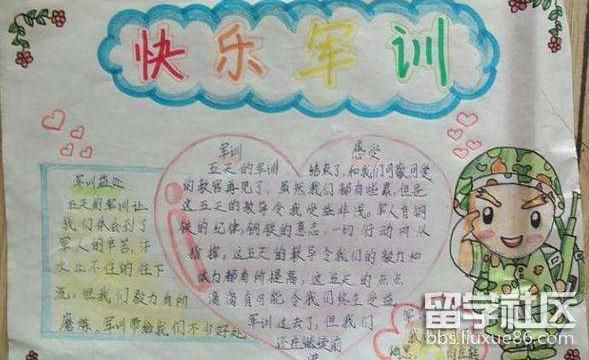 快乐军训
军训益处
五天的军训让
我们体会到了
军人的辛苦,汗
水止不住的往下
流,但我们毅力有所
磨炼、军训带给我们不少好处
军训 感受
五天的军训 结束了,和我们可敬可爱
的教官再见了,虽然我们都有些累,但是
这五天的教导令我受益非浅。军人有钢
铁的纪律,钢铁的意志,一切行动听从
指挥,这五天的教导令我们的毅力和
体力都有所提高,这五天的点点
滴滴有可能令我们终生受益。
军训过去了,但我们
还在继续前
进
军
我
留学社区
bbs.liuxue86.com